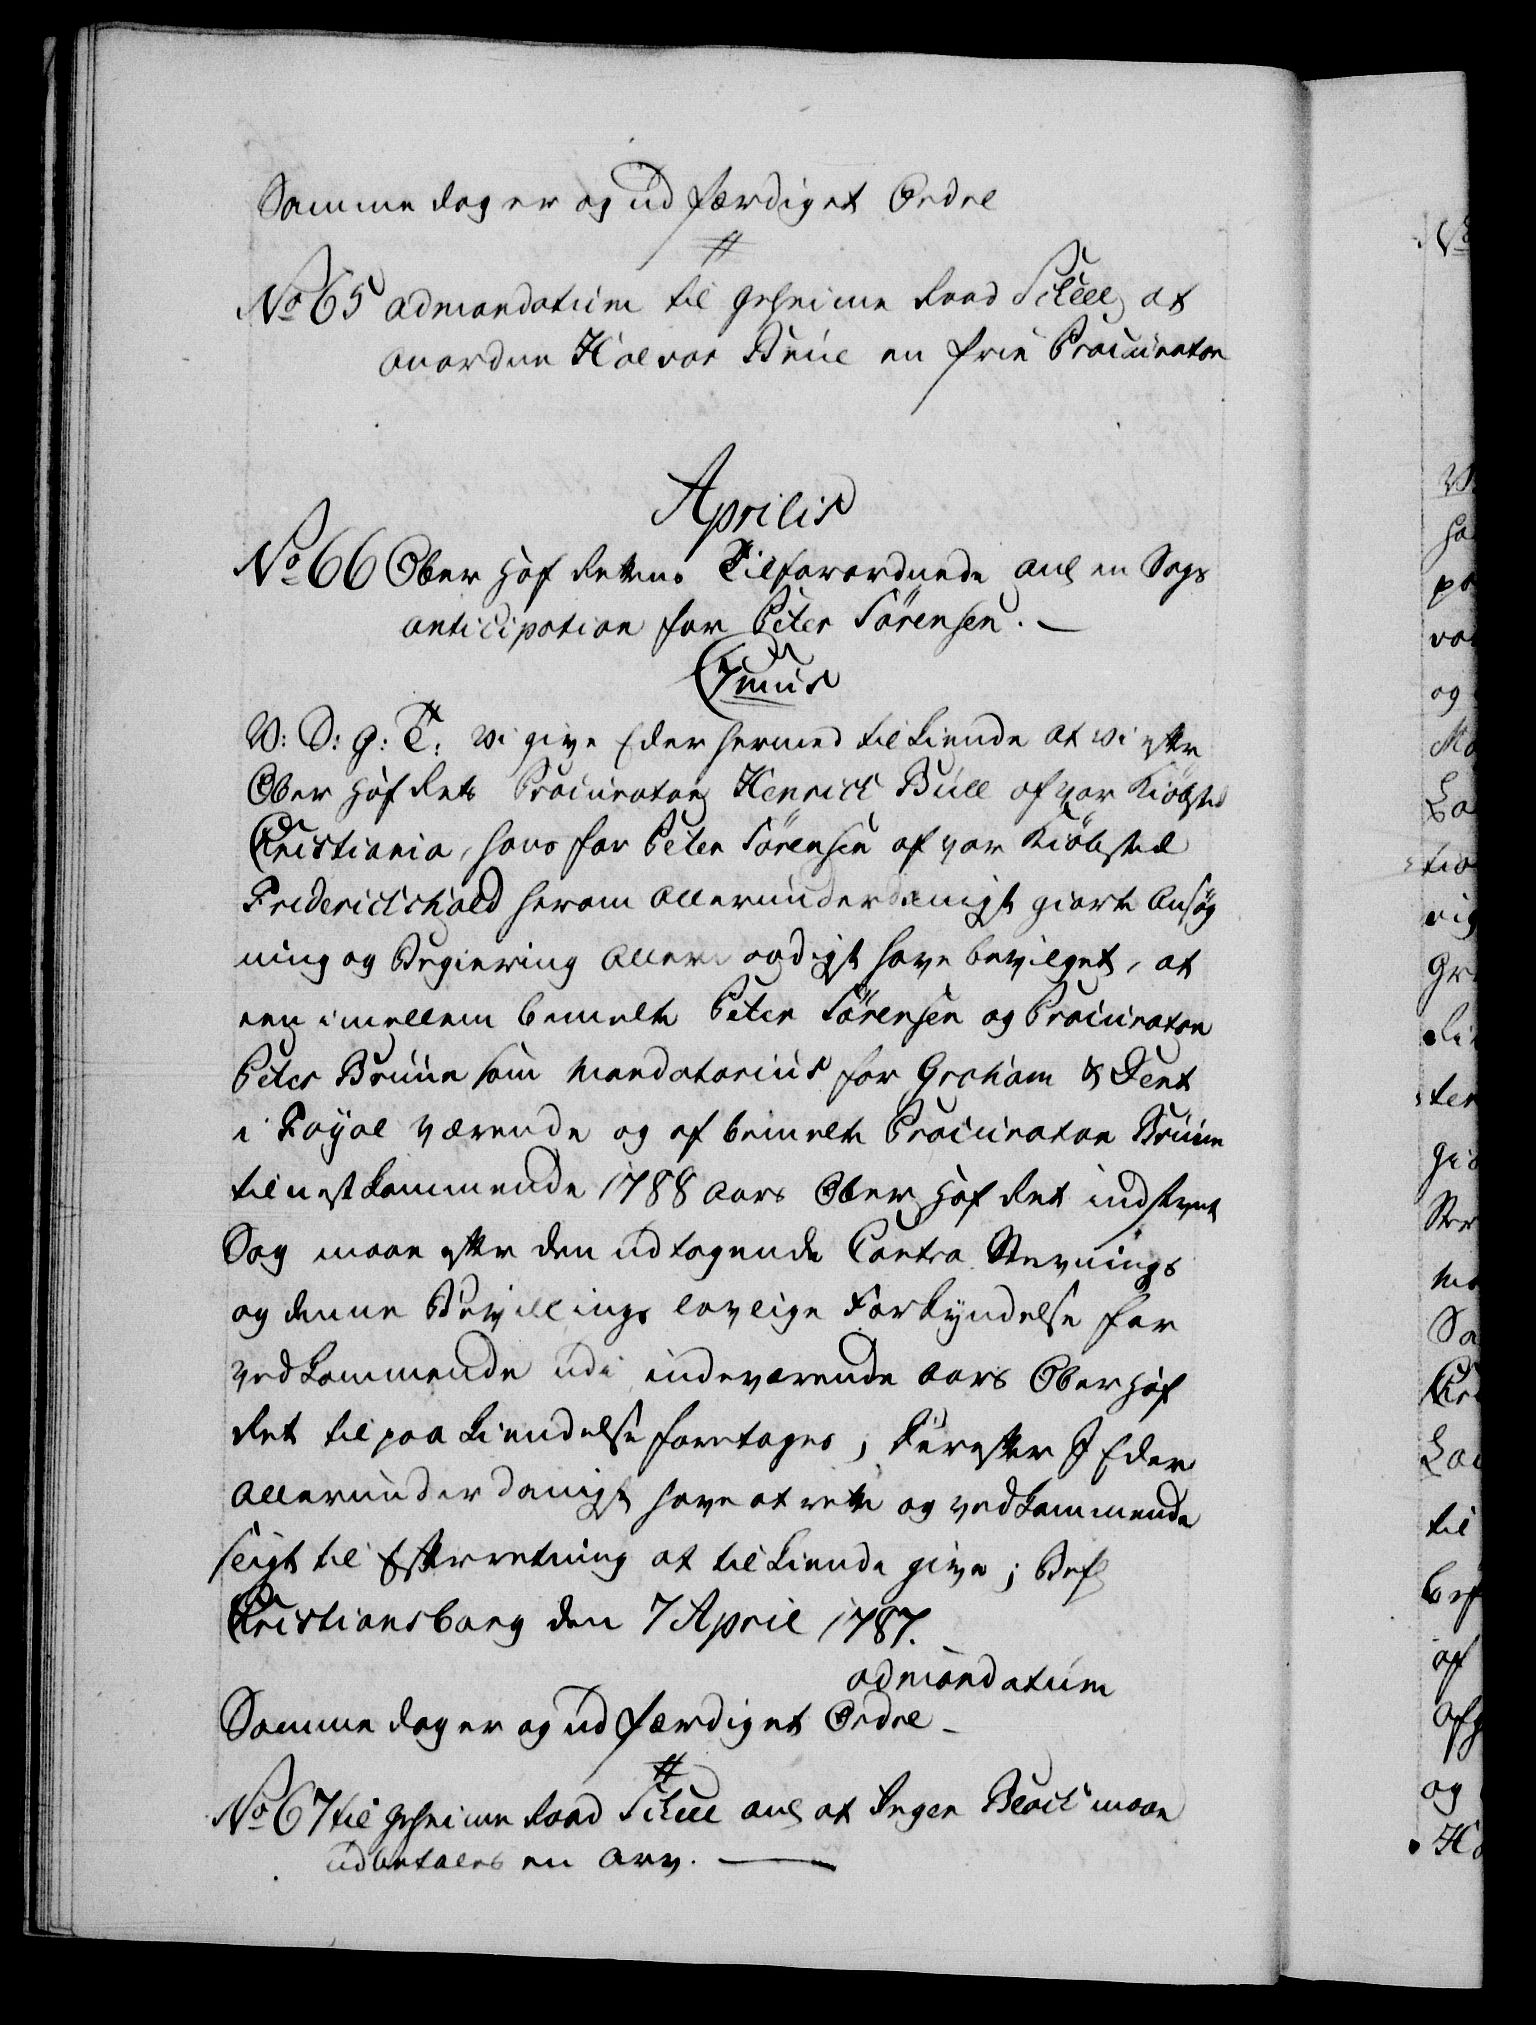 Samme dag er og udfærdiget Ordre
//
No 65 admandatum til geheime Raad Scheel, at
anordne Halvor Bruel en frie Procurator
Aprilis
No 66 Ober Hof Rettens Tilforordnede anl en Sags
anticipation for Peter Sörensen. —
7mus
V: S: G: T: Vi give Eder hermed tilkiende at vi efter
Ober Hof Rets Procurator Henrich Bull af vor Kiöbsted
Christiania, hans for Peter Sörensen af vor Kiöbsted
Friderichshald herom allerunderdanigst giorte Ansög
ning og Begiering allernaadigst have bevilget, at
een imellem bemelte Peter Sörensen og Procurator
Peter Bruun som Mandatarius for Graham & Kent
i Fayal værende og af bemelte Procurator Bruun
til nestkommende 1788 Aars Ober Hof Ret indstevnt
Sag maae efter den udtagende Contra Stevnings
og denne Bevillings lovlige Forkyndelse for
vedkommende udi indeværende Aars Ober Hof
Ret til paa Kiendelse foretages; Derefter I Eder
allerunderdanigst have at rette og vedkommende
sligt til Efterretning at tilkiende give; Bef
Christiansborg den 7 April 1787.
admandatum
Samme dag er og udfærdiget Ordre –
//
No 67 til geheime Raad Scheel anl at Inger Block maae
udbetales en Arv. —